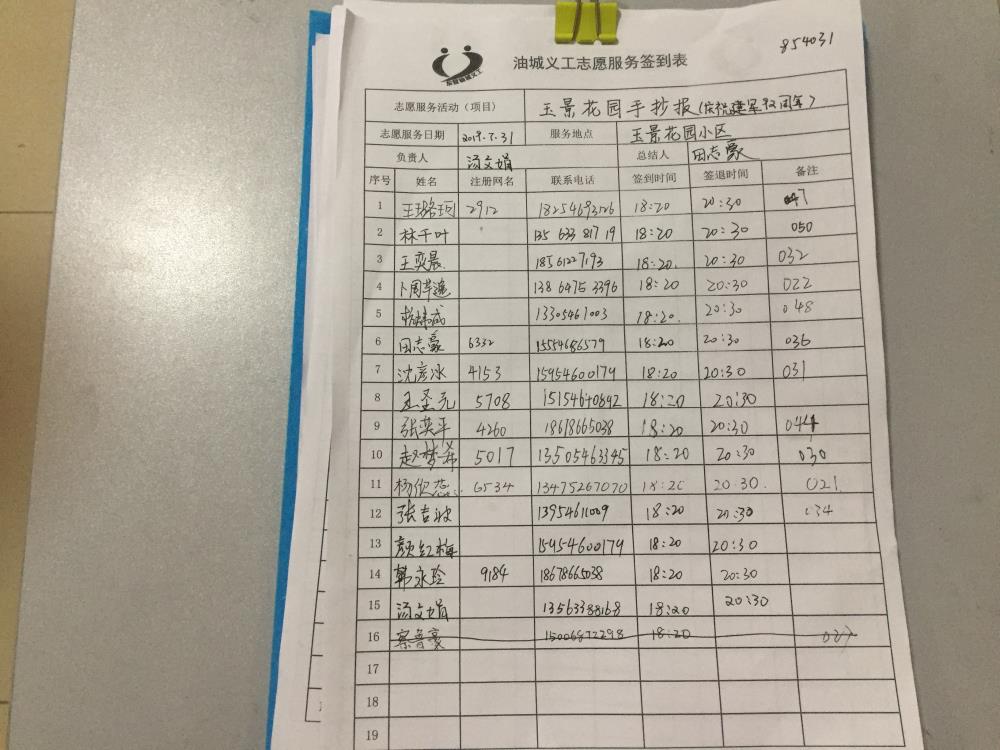 854031
油城义工志愿服务签到表
志愿服务活动（项目） 玉景花园手抄报(庆祝建军92周年)
志愿服务日期 2019.7.31 服务地点 玉景花园小区
负责人 汤文娟 总结人 田志豪
序号 姓名 注册网名 联系电话 签到时间 签退时间 备注
1 2912 18254693526 18:20 20:30
2 林千叶 135 633 817 19 18:20 20:30 050
3 王奕晨 18561227193 18:20. 20:30 032
4 138 6475 3396 18:20 20:30 022
5 13305461003 18:20. 20:30 048
6 田志豪 6332 15554686579 18:20 20:30 036
7 沈彦冰 4153 15954600179 18:20 20:30 031
8 5708 15154640842 18:20 20:30
9 张奕平 4260 18618665038 18:20 20:30 044
10 赵梦希 5017 13505463345 18:20 20:30 030
11 6534 13475267070 18:20 20:30. 021
12 张吉波 13954611009 18:20 20:30 034
13 颜红梅 15954600179 18:20 20:30
14 韩永玲 9184 18678665038 18:20 20:30
15 汤文娟 13563388168 18:20 20:30
16 15006872298 18:20 027
17
18
19